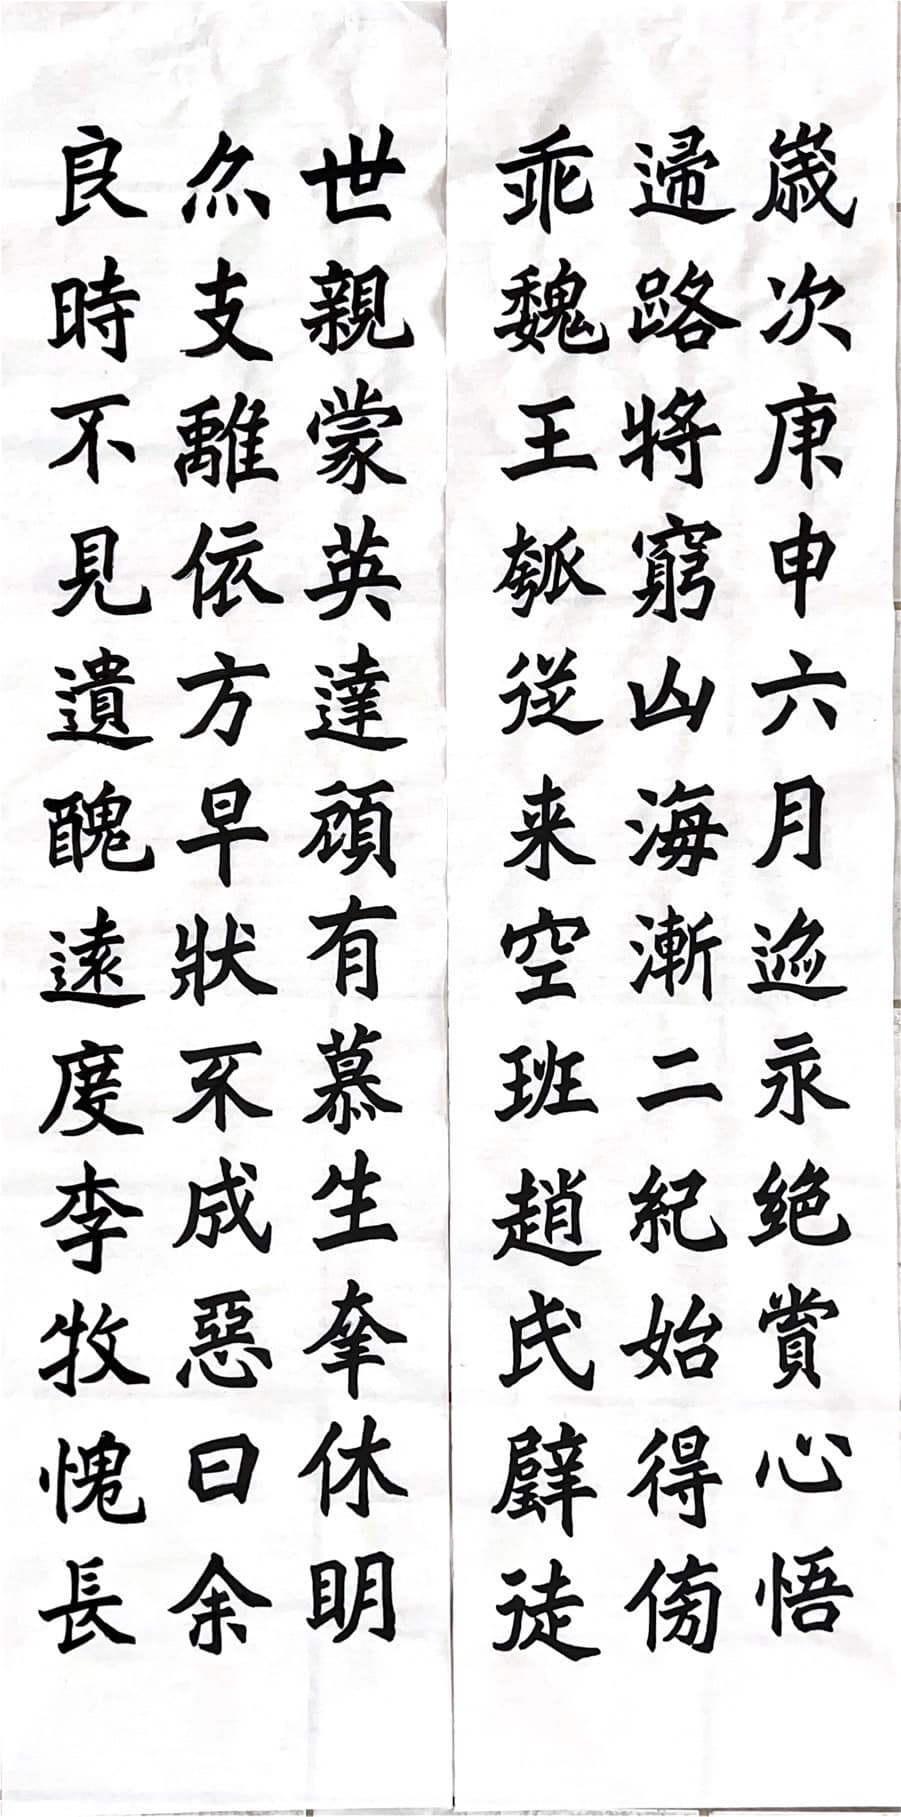 歲次庚申六月迹永絕賞心悟
歸路將窮山海漸二紀始得傍
乖魏王瓠從来空班趙氏璧徒
世親蒙英達顧有慕生幸休明
亦支離依方早狀不成惡曰余
良時不見遺醜遠度李牧愧長